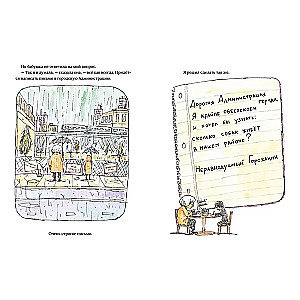 Но бабушка не ответила на мой вопрос.
— Так я и думала, — сказала она, — всё как всегда. Придёт-
ся написать письмо в городскую Администрацию.
Очень строгое письмо.
Я решил сделать так же.
Дорогая Администрация
Я крайне обеспокоен
и хотел бы узнать:
сколько собак живёт
в нашем районе?
Неравнодушный Горожанин